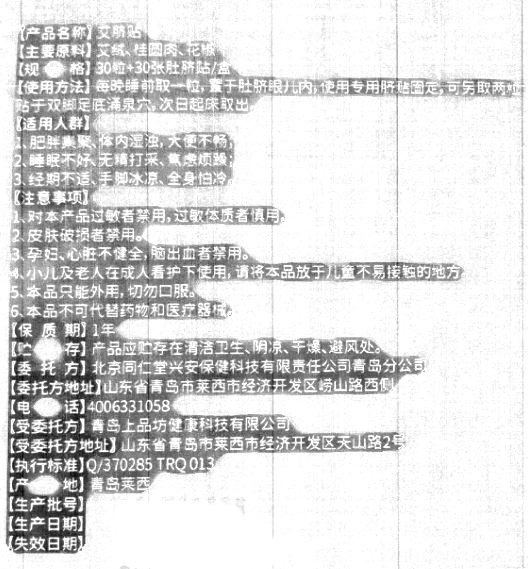 【产品名称】艾脐贴
【主要原料】艾绒、桂圆肉、花椒
【规 格】30粒+30张肚脐贴/盒
【使用方法】每晚睡前取一粒，置于肚脐眼儿内，使用专用脐贴固定，可另取两粒
贴于双脚足底涌泉穴，次日起床取出。
【适用人群】
1、肥胖集聚、体内湿浊，大便不畅；
2、睡眠不好、无精打采、焦虑烦躁；
3、经期不适、手脚冰凉、全身怕冷。
【注意事项】
1、对本产品过敏者禁用，过敏体质者慎用。
2、皮肤破损者禁用。
3、孕妇、心脏不健全，脑出血者禁用。
4、小儿及老人在成人看护下使用，请将本品放于儿童不易接触的地方。
5、本品只能外用，切勿口服。
6、本品不可代替药物和医疗器械。
【保 质 期】1年
【贮 存】产品应贮存在清洁卫生、阴凉、干燥、避风处。
【委 托 方】北京同仁堂兴安保健科技有限责任公司青岛分公司
【委托方地址】山东省青岛市莱西市经济开发区崂山路西侧
【电 话】4006331058
【受委托方】青岛上品坊健康科技有限公司
【受委托方地址】山东省青岛市莱西市经济开发区天山路2号
【执行标准】Q/370285 TRQ 013
【产 地】青岛莱西
【生产批号】
【生产日期】
【失效日期】